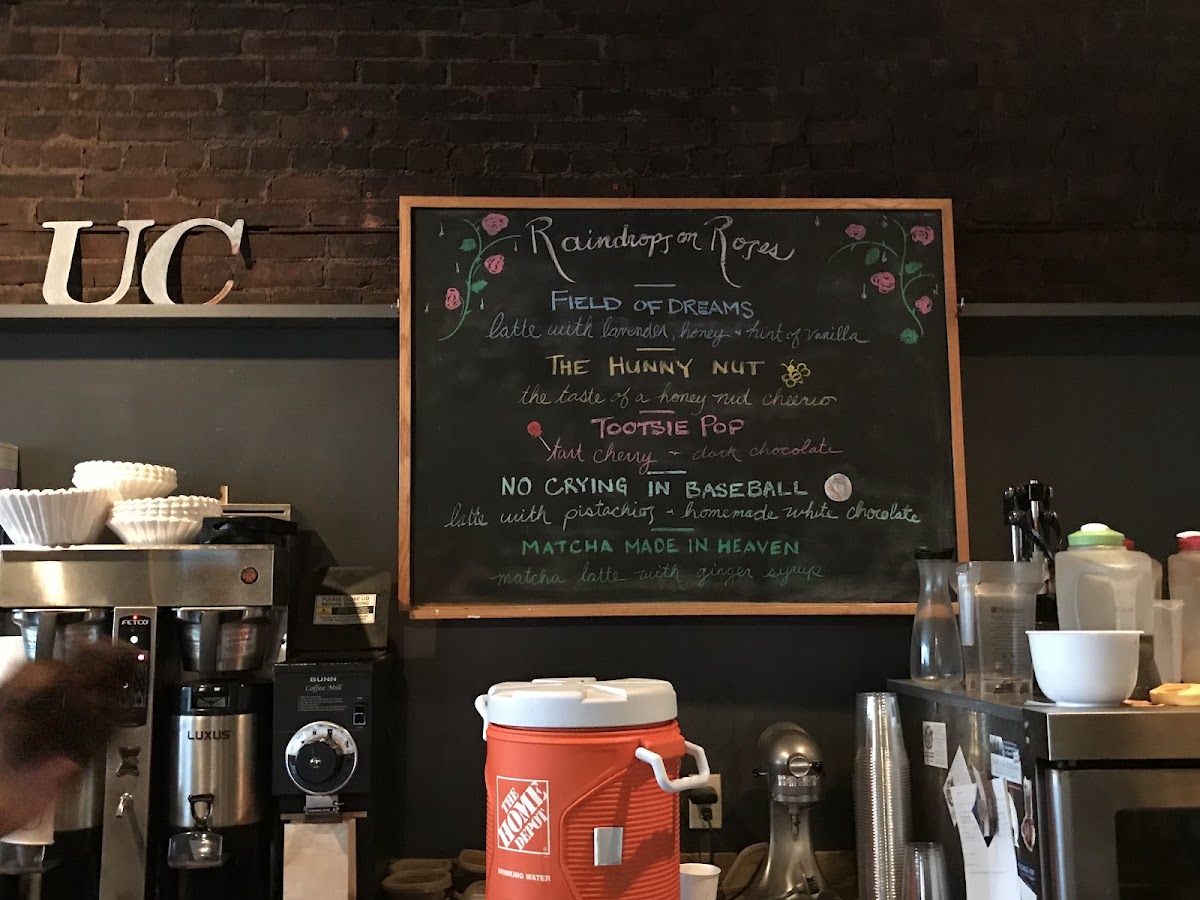 UC
Raindrops on Roses
FIELD OF DREAMS
latte with lavender, honey + hint of vanilla
THE HUNNY NUT
the taste of a honey nut cheerio
TOOTSIE POP
tart cherry + dark chocolate
NO CRYING IN BASEBALL
latte with pistachios + homemade white chocolate
MATCHA MADE IN HEAVEN
matcha latte with ginger syrup
FETCO
LUXUS
PLEASE CLOSE LID
BEFORE GRINDING
BUNN
Coffee Mill
THE
HOME
DEPOT
DRINKING WATER